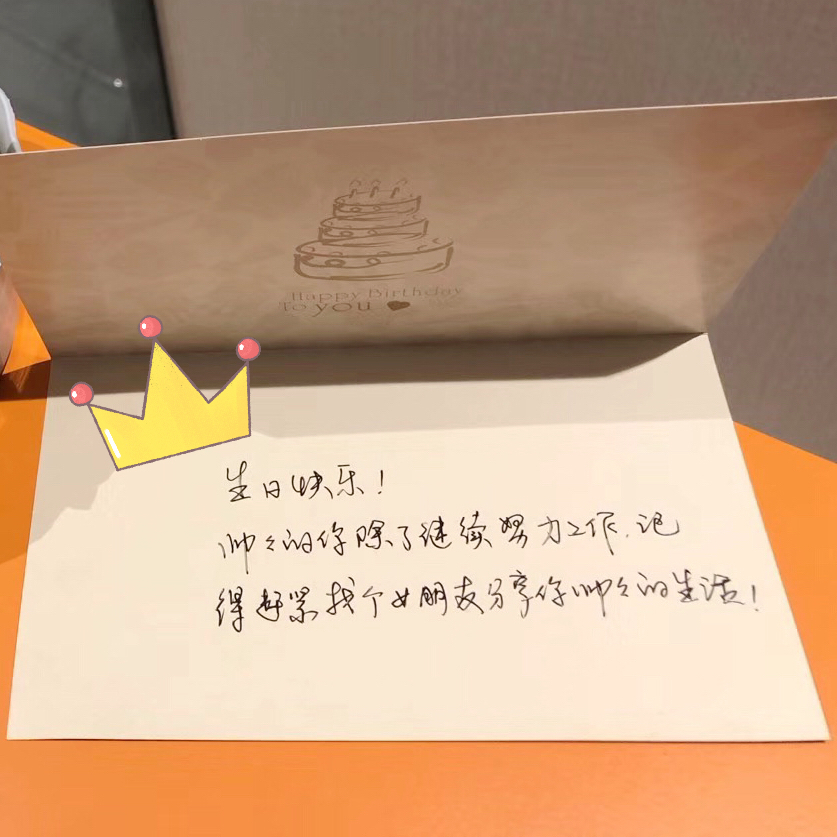 Happy Birthday
To you
生日快乐！
帅々的你除了继续努力工作，记
得赶紧找个女朋友分享你帅々的生活！